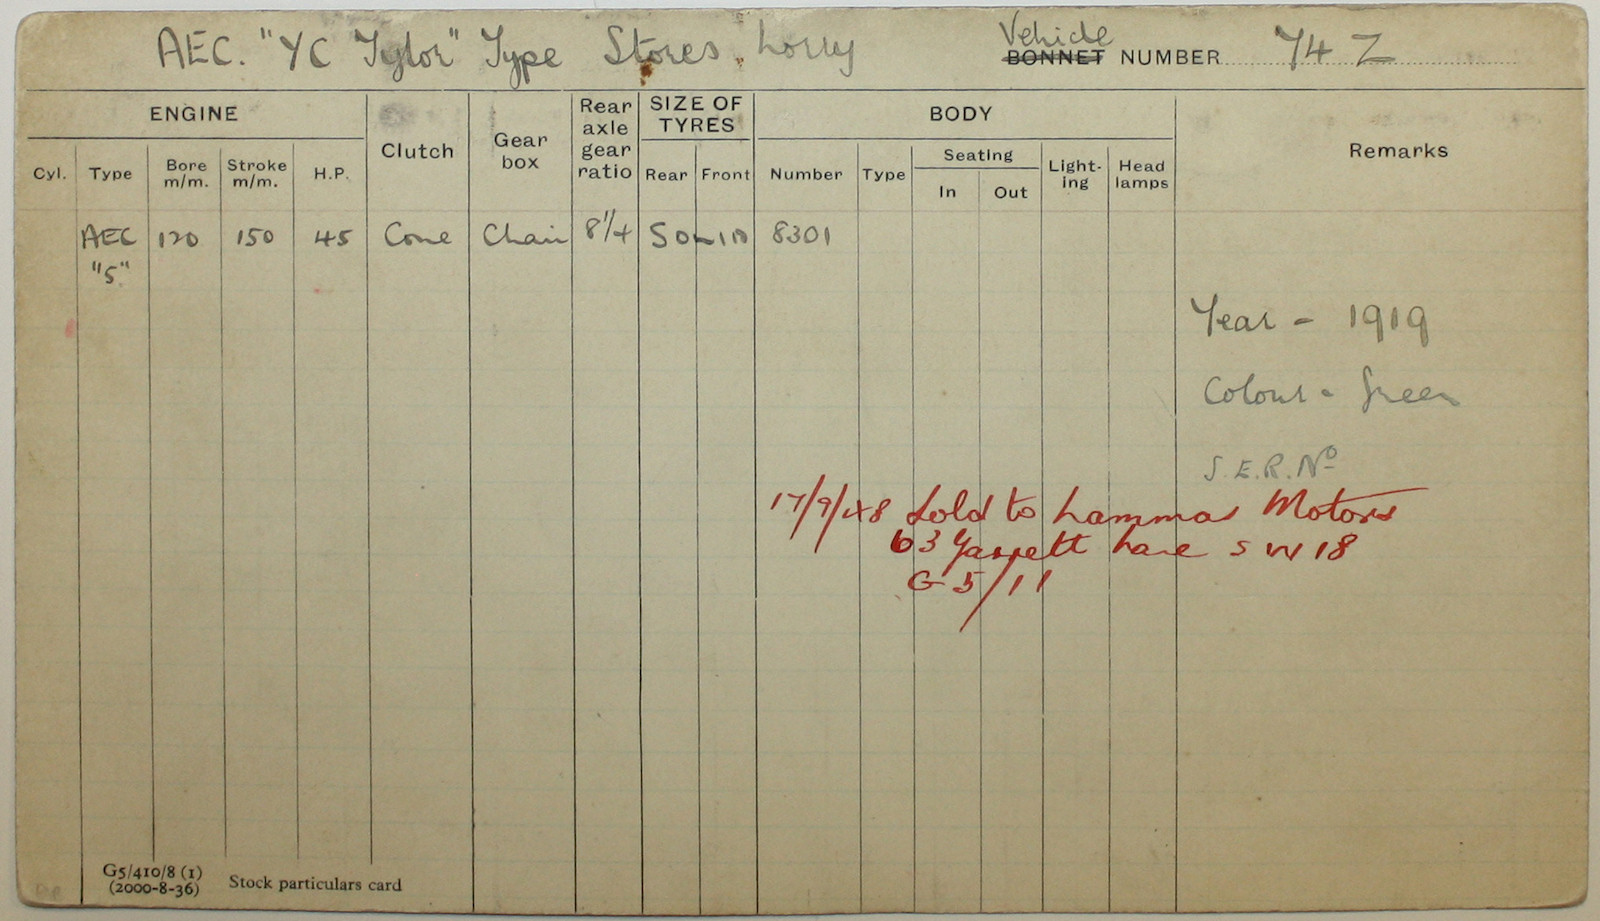 AEC. "YC Tylor" Type Stores Lorry
Vehicle
BONNET NUMBER 74 Z
ENGINE
Clutch
Gear box
Rear axle gear ratio
SIZE OF TYRES
BODY
Remarks
Cyl. Type Bore m/m. Stroke m/m. H.P.
Rear Front
Number Type Seating In Out Light-ing Head lamps
AEC "5" 120 150 45 Cone Chain 8 1/4 SOLID 8301
Year - 1919
Colour - Green
S.E.R. No
17/9/48 Sold to Lammas Motors
63 Garrett Lane S W 18
G 5/11
G5/410/8 (1)
(2000-8-36)
Stock particulars card